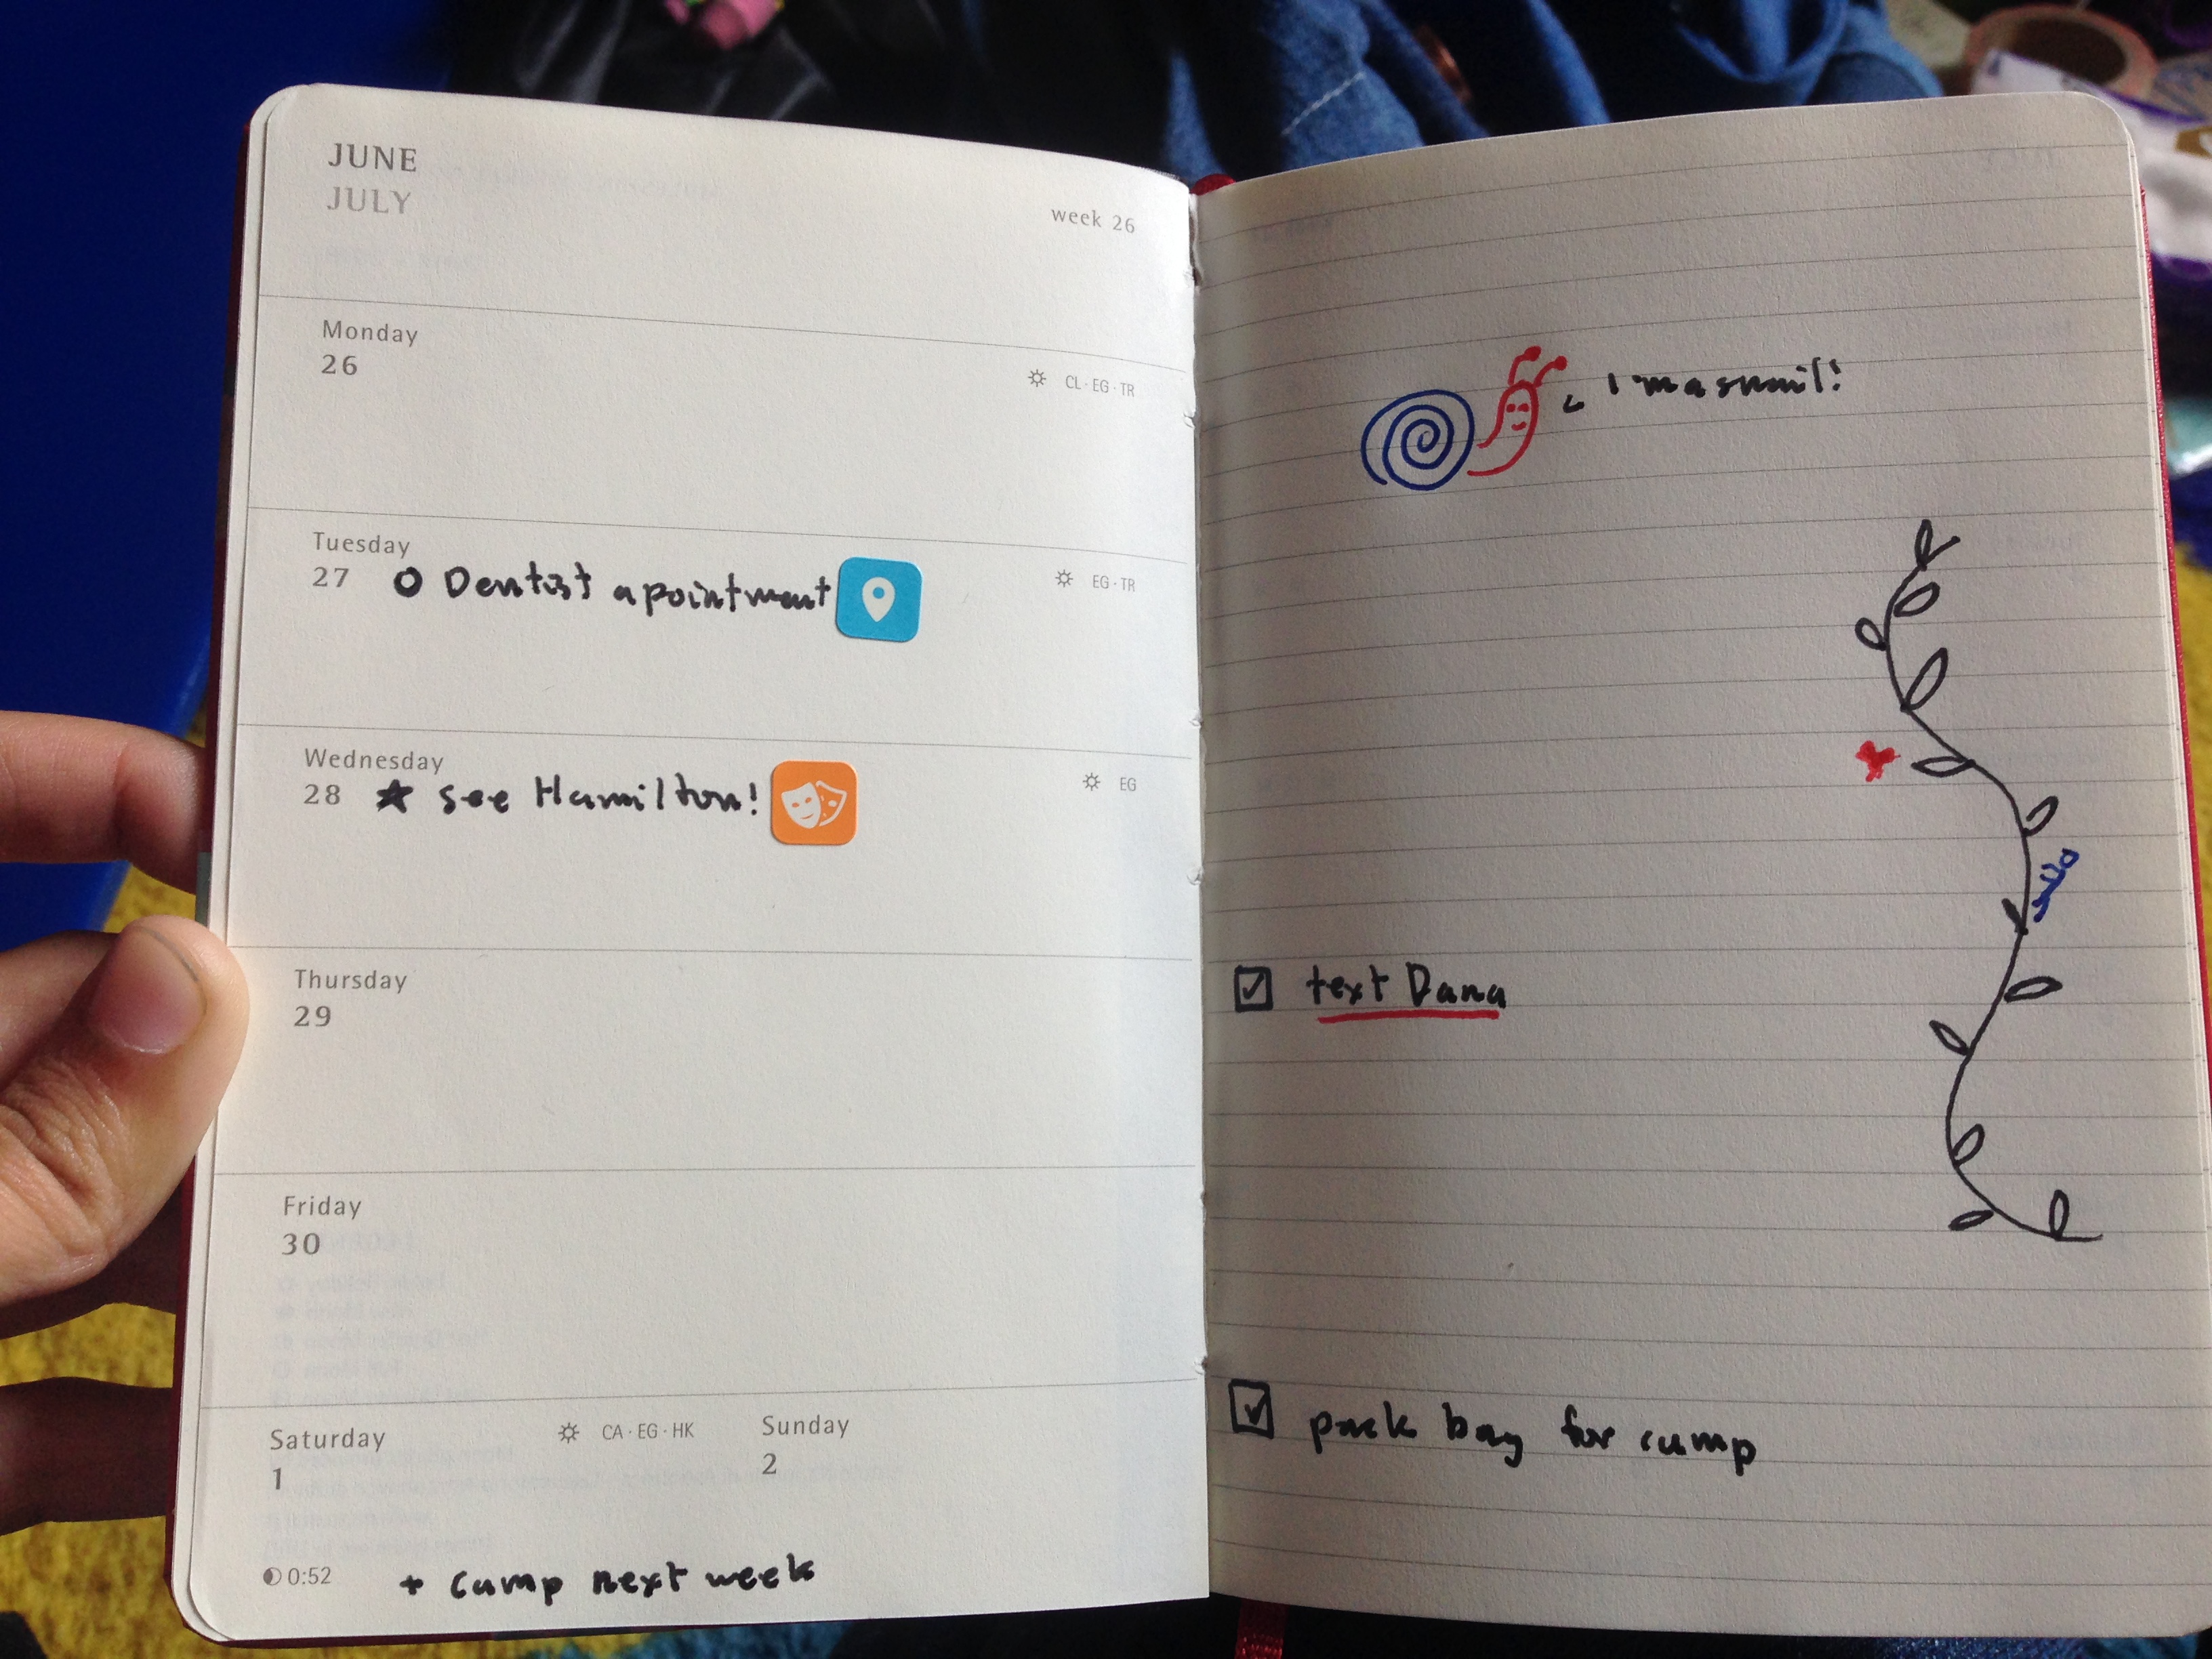 JUNE
JULY
week 26
Monday
26
CL · EG · TR
Tuesday
27
O Dentist apointment
EG · TR
Wednesday
28
★ see Hamilton!
EG
Thursday
29
Friday
30
Saturday
1
CA · EG · HK
Sunday
2
0:52
+ camp next week
I'm a snail!
text Dana
pack bag for camp